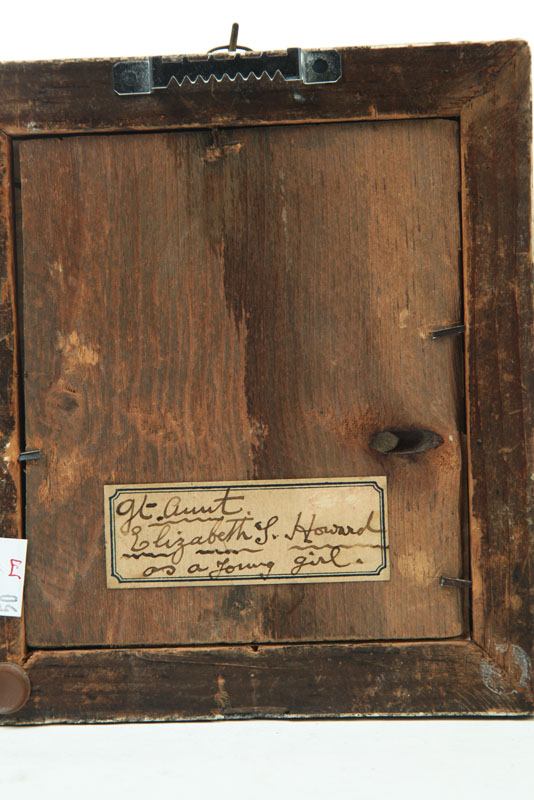 gt. aunt.
Elizabeth S. Howard
as a young girl.